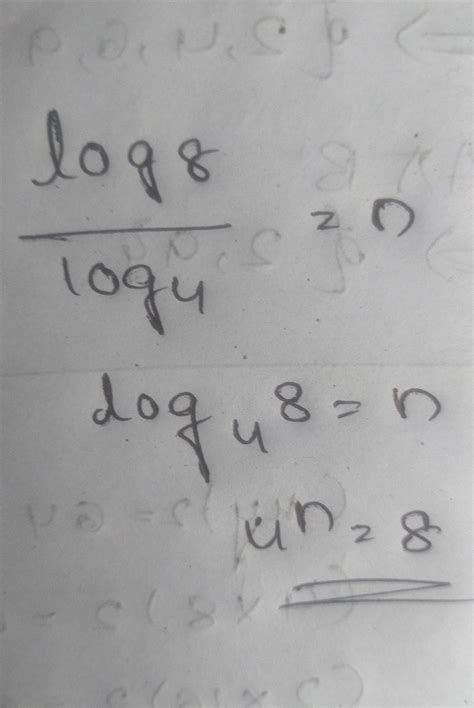 log 8
log 4 = n
log₄ 8 = n
4ⁿ = 8